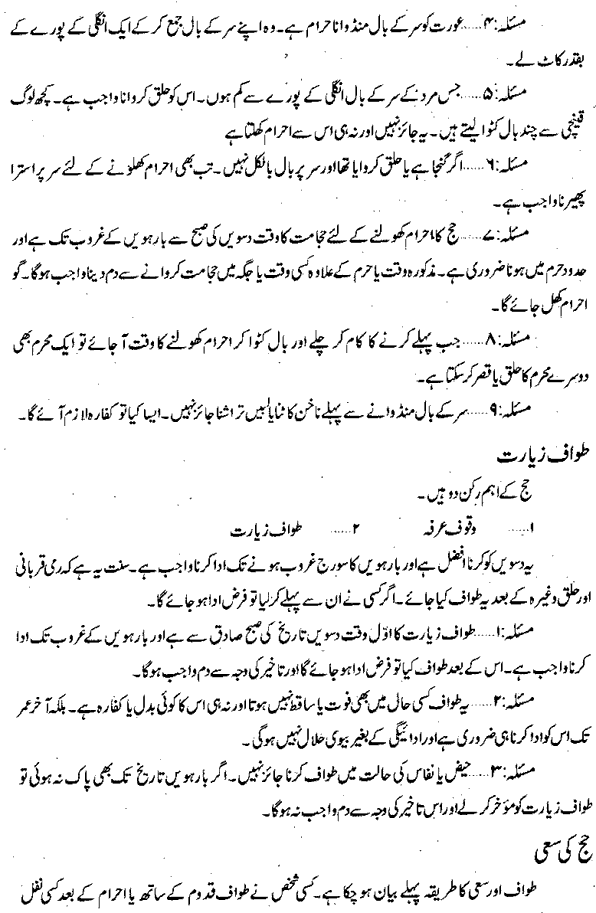 مسئلہ:۴......عورت کو سر کے بال منڈوانا حرام ہے۔ وہ اپنے سر کے بال جمع کر کے ایک انگلی کے پورے کے
بقدر کاٹ لے۔
مسئلہ:۵......جس مرد کے سر کے بال انگلی کے پورے سے کم ہوں۔ اس کو حلق کروانا واجب ہے۔ کچھ لوگ
قینچی سے چند بال کٹوا لیتے ہیں۔ یہ جائز نہیں اور نہ ہی اس سے احرام کھلتا ہے
مسئلہ:۶......اگر گنجا ہے یا حلق کروایا تھا اور سر پر بال بالکل نہیں۔ تب بھی احرام کھلونے کے لئے سر پر استرا
پھیرنا واجب ہے۔
مسئلہ:۷......حج کا احرام کھولنے کے لئے حجامت کا وقت دسویں کی صبح سے بارہویں کے غروب تک ہے اور
حدود حرم میں ہونا ضروری ہے۔ مذکورہ وقت یا حرم کے علاوہ کسی وقت یا جگہ میں حجامت کروانے سے دم دینا واجب ہوگا۔ گو
احرام کھل جائے گا۔
مسئلہ:۸......جب پہلے کرنے کا کام کر چلے اور بال کٹوا کر احرام کھولنے کا وقت آ جائے تو ایک محرم بھی
دوسرے محرم کا حلق یا قصر کر سکتا ہے۔
مسئلہ:۹......سر کے بال منڈوانے سے پہلے ناخن کاٹنا یا لبیں تراشنا جائز نہیں۔ ایسا کیا تو کفارہ لازم آئے گا۔
طواف زیارت
حج کے اہم رکن دو ہیں۔
۱...... وقوف عرفہ ۲...... طواف زیارت
یہ دسویں کو کرنا افضل ہے اور بارہویں کا سورج غروب ہونے تک ادا کرنا واجب ہے۔ سنت یہ ہے کہ رمی قربانی
اور حلق وغیرہ کے بعد یہ طواف کیا جائے۔ اگر کسی نے ان سے پہلے کر لیا تو فرض ادا ہو جائے گا۔
مسئلہ:۱......طواف زیارت کا اوّل وقت دسویں تاریخ کی صبح صادق سے ہے اور بارہویں کے غروب تک ادا
کرنا واجب ہے۔ اس کے بعد طواف کیا تو فرض ادا ہو جائے گا اور تاخیر کی وجہ سے دم واجب ہوگا۔
مسئلہ:۲......یہ طواف کسی حال میں بھی فوت یا ساقط نہیں ہوتا اور نہ ہی اس کا کوئی بدل یا کفارہ ہے۔ بلکہ آخر عمر
تک اس کو ادا کرنا ہی ضروری ہے اور ادائیگی کے بغیر بیوی حلال نہیں ہوگی۔
مسئلہ:۳......حیض یا نفاس کی حالت میں طواف کرنا جائز نہیں۔ اگر بارہویں تاریخ تک بھی پاک نہ ہوئی تو
طواف زیارت کو مؤخر کر لے اور اس تاخیر کی وجہ سے دم واجب نہ ہوگا۔
حج کی سعی
طواف اور سعی کا طریقہ پہلے بیان ہو چکا ہے۔ کسی شخص نے طواف قدوم کے ساتھ یا احرام کے بعد کسی نفل